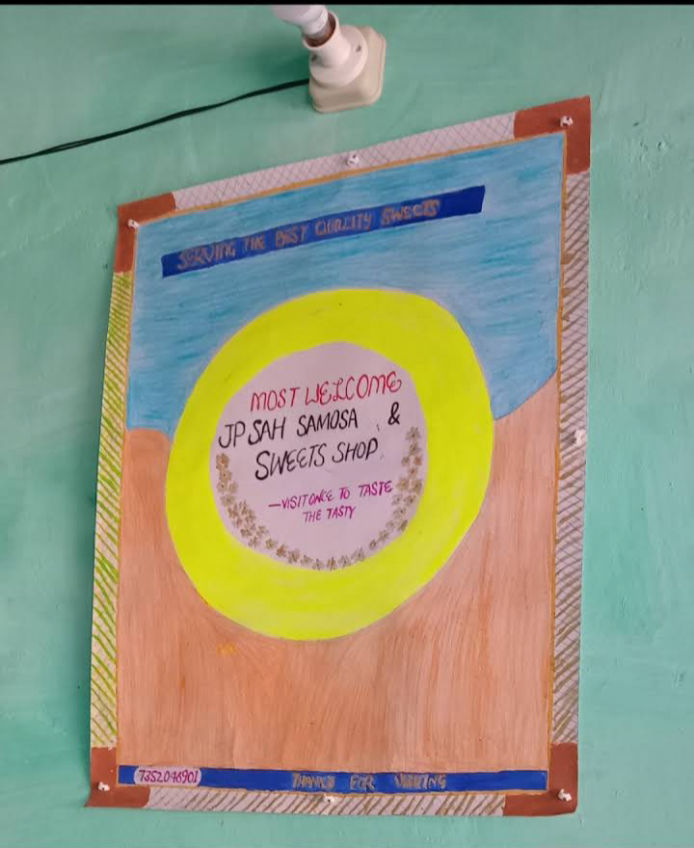 SERVING THE BEST QUALITY SWEETS
MOST WELCOME
JP SAH SAMOSA &
SWEETS SHOP
—VISIT ONCE TO TASTE
THE TASTY
7352046901
THANKS FOR VISITING